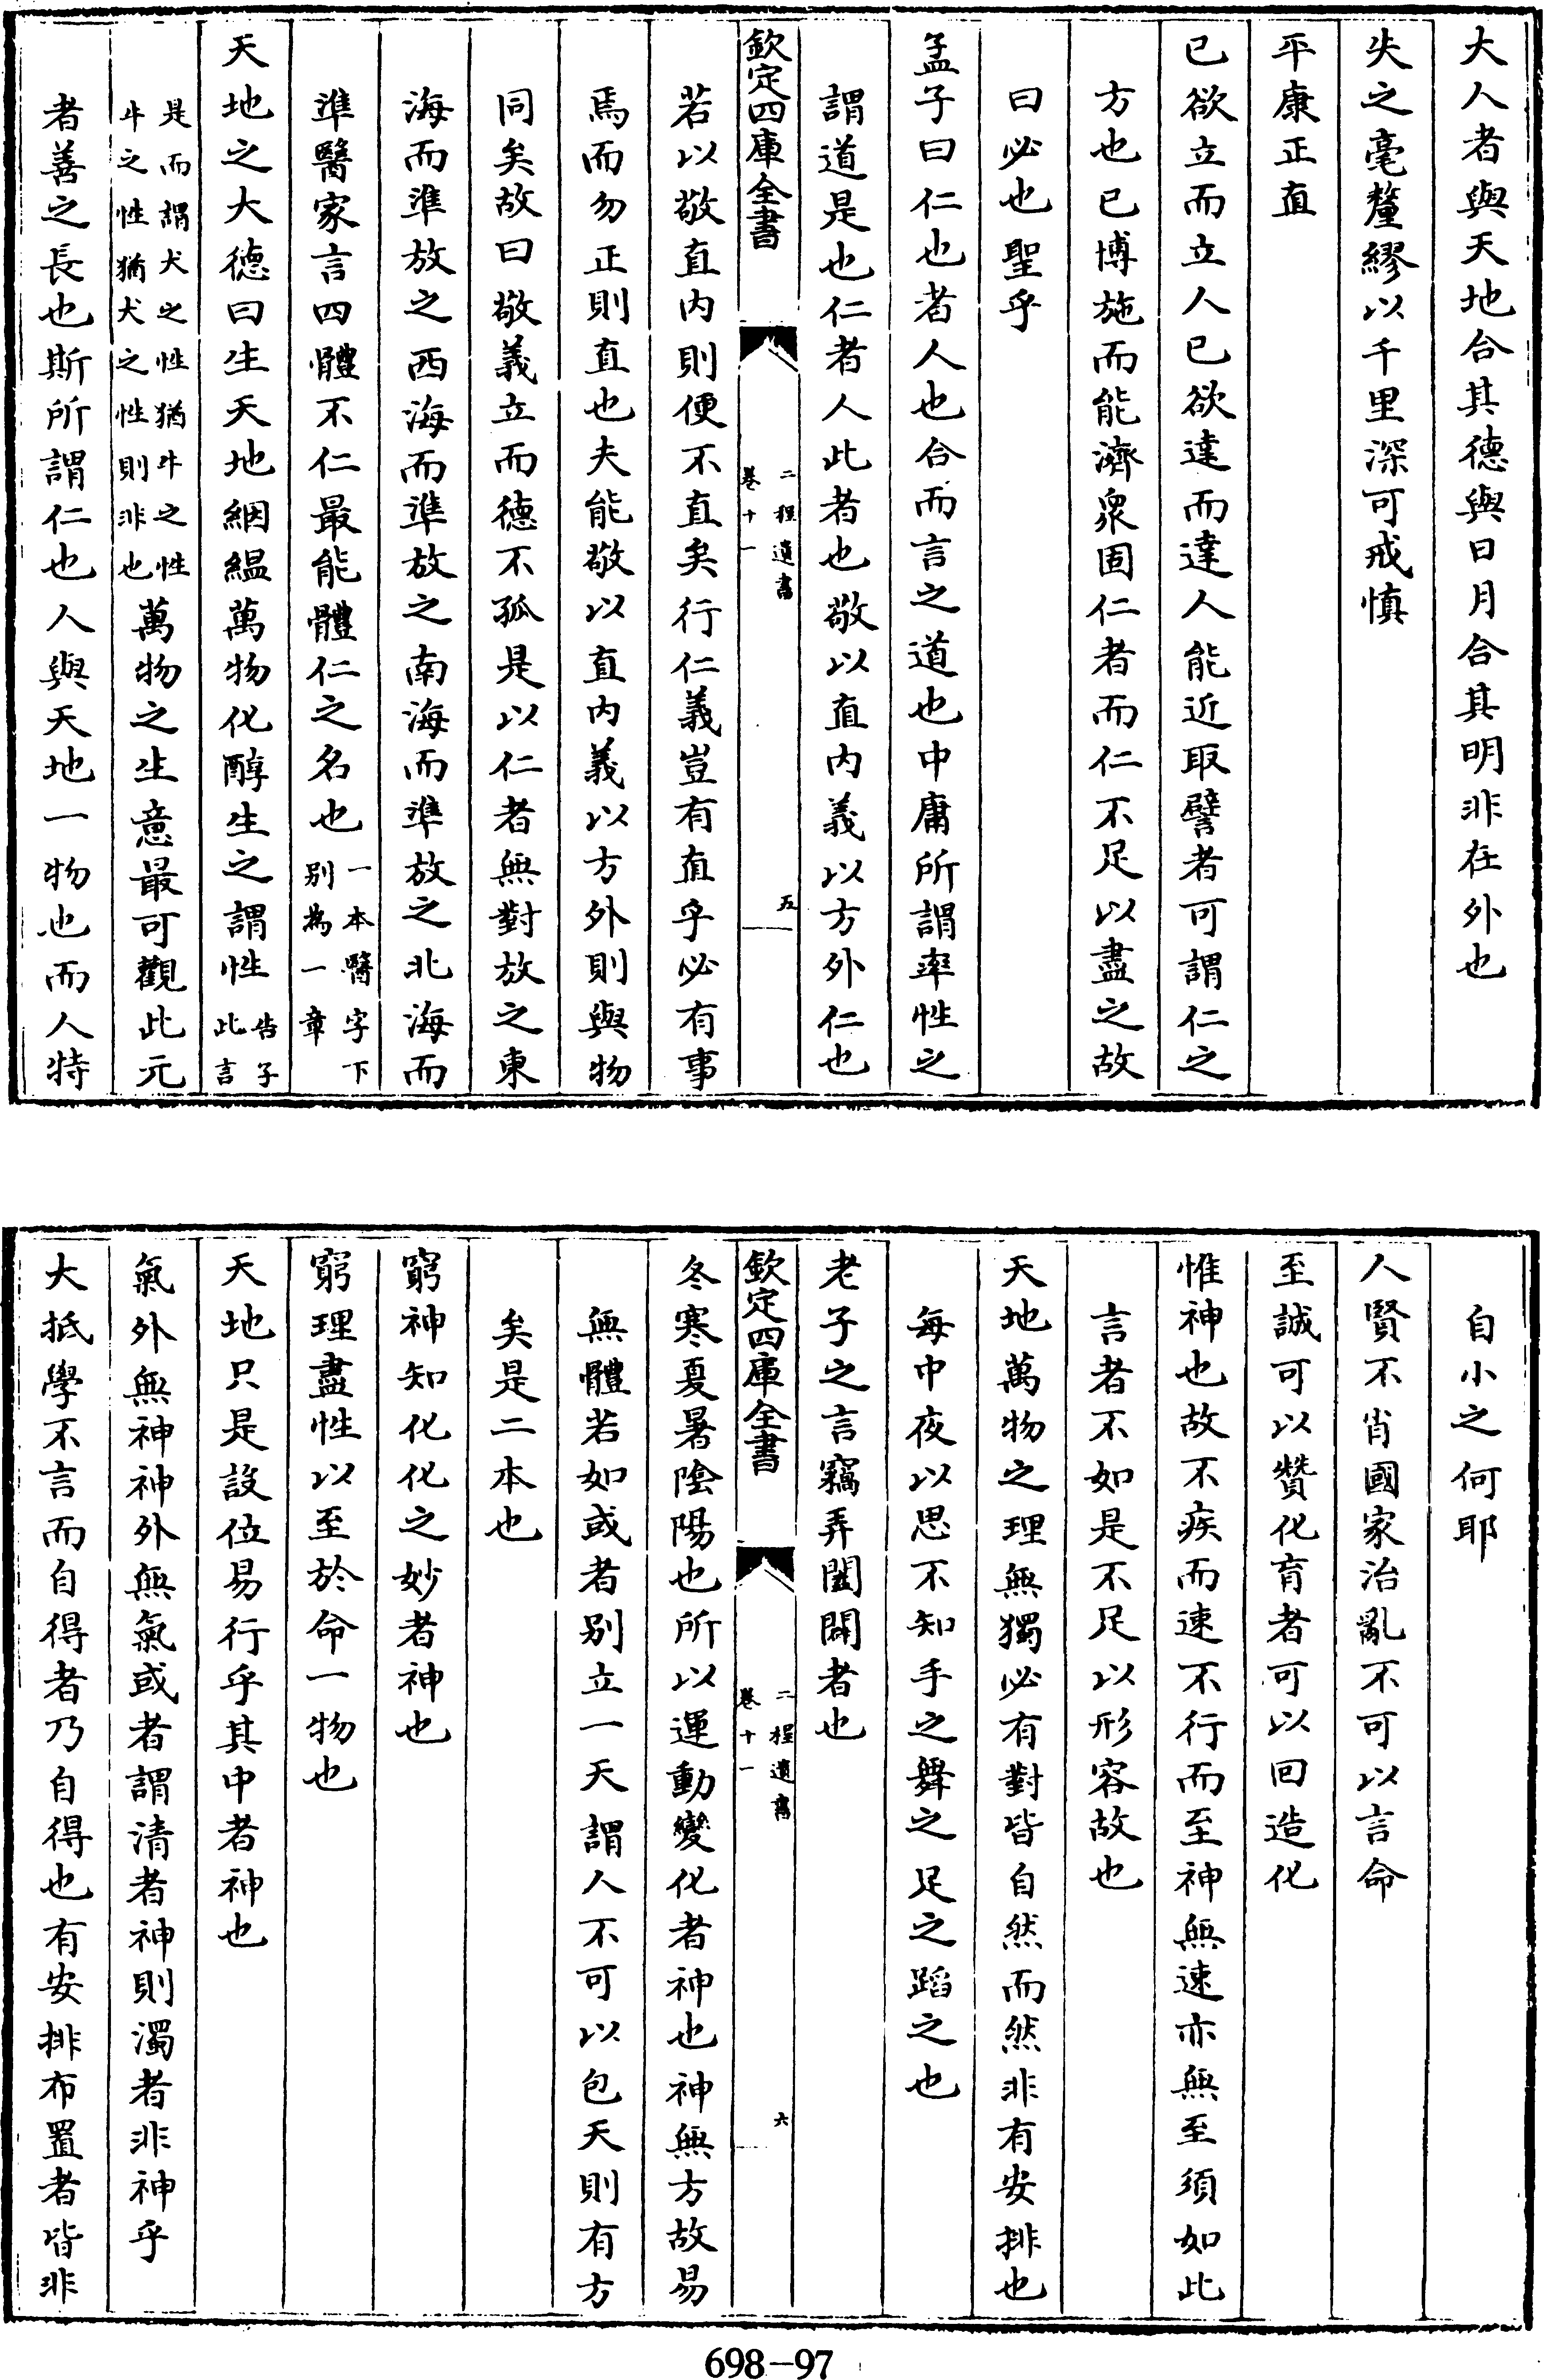 大人者與天地合其德與日月合其明非在外也
失之毫釐繆以千里深可戒慎
平康正直
已欲立而立人已欲達而達人能近取譬者可謂仁之
方也已博施而能濟衆固仁者而仁不足以盡之故
曰必也聖乎
孟子曰仁也者人也合而言之道也中庸所謂率性之
謂道是也仁者人此者也敬以直内義以方外仁也
欽定四庫全書
二程遺書
卷十一
五
若以敬直内則便不直矣行仁義豈有直乎必有事
焉而勿正則直也夫能敬以直内義以方外則與物
同矣故曰敬義立而德不孤是以仁者無對放之東
海而準放之西海而準放之南海而準放之北海而
準醫家言四體不仁最能體仁之名也一本醫字下
别為一章
天地之大德曰生天地絪緼萬物化醇生之謂性告子
此言
是而謂犬之性猶牛之性
牛之性猶犬之性則非也萬物之生意最可觀此元
者善之長也斯所謂仁也人與天地一物也而人特
自小之何耶
人賢不肖國家治亂不可以言命
至誠可以贊化育者可以回造化
惟神也故不疾而速不行而至神無速亦無至須如此
言者不如是不足以形容故也
天地萬物之理無獨必有對皆自然而然非有安排也
每中夜以思不知手之舞之足之蹈之也
老子之言竊弄闔闢者也
欽定四庫全書
二程遺書
卷十一
六
冬寒夏暑陰陽也所以運動變化者神也神無方故易
無體若如或者别立一天謂人不可以包天則有方
矣是二本也
窮神知化化之妙者神也
窮理盡性以至於命一物也
天地只是設位易行乎其中者神也
氣外無神神外無氣或者謂清者神則濁者非神乎
大抵學不言而自得者乃自得也有安排布置者皆非
698-97